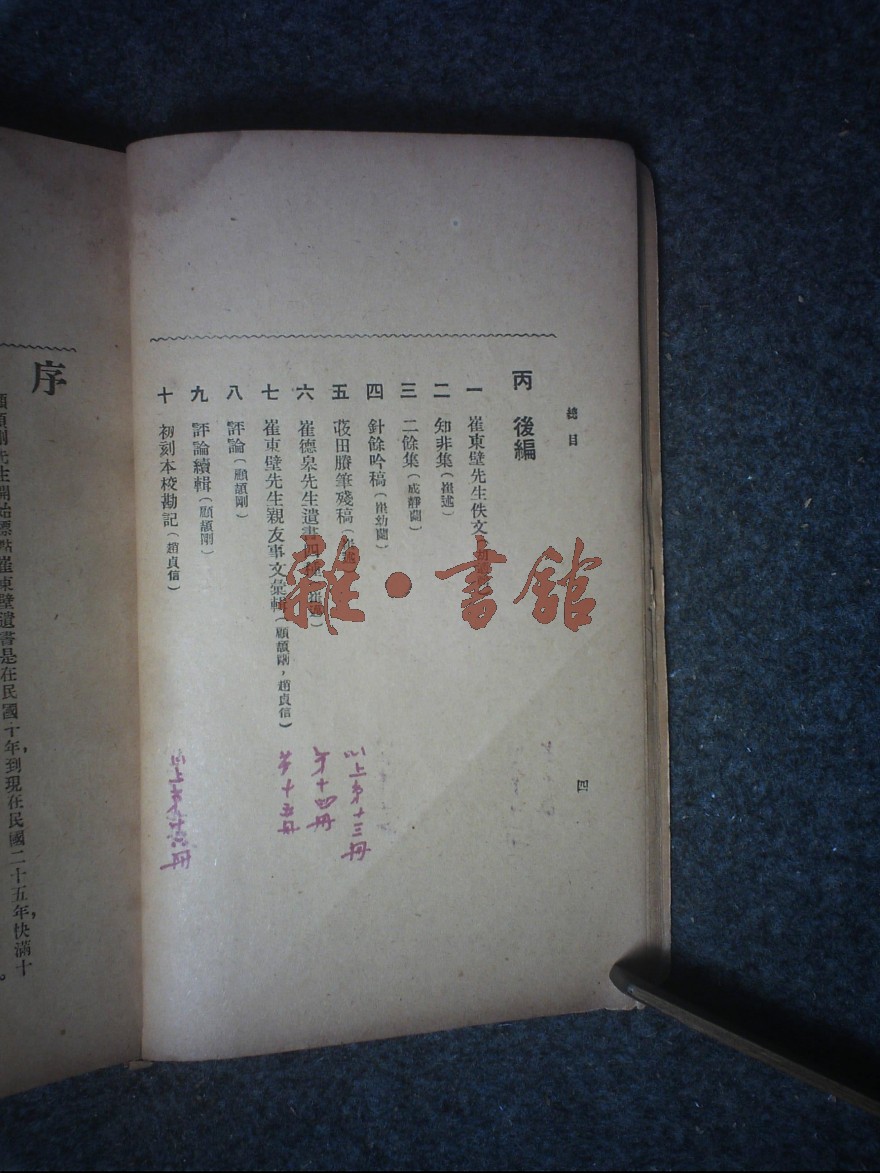 總目
四
丙 後編
一 崔東壁先生佚文
二 知非集(崔述)
三 二餘集(成靜蘭)
四 針餘吟稿(崔幼蘭)
五 荍田賸筆殘稿
六 崔德皋先生遺書四種
七 崔東壁先生親友事文彙輯(顧頡剛,趙貞信)
八 評論(顧頡剛)
九 評論續輯(顧頡剛)
十 初刻本校勘記(趙貞信)
以上第十三冊
第十四冊
第十五冊
以上第十六冊
雜·書館
序
顧頡剛先生開始標點崔東壁遺書是在民國十年,到現在民國二十五年,快滿十